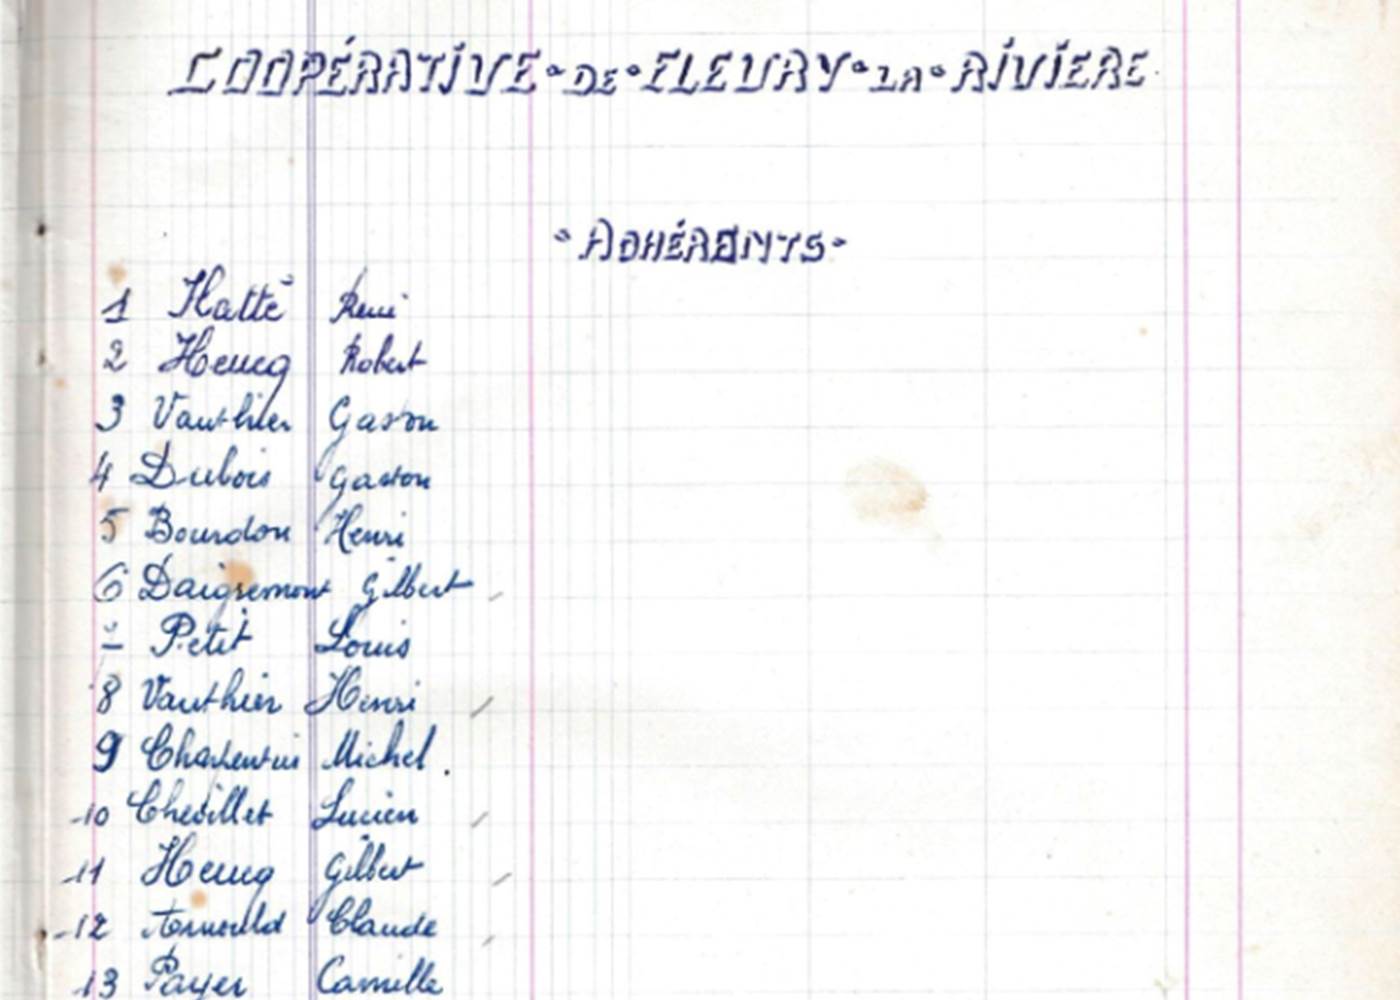 COOPÉRATIVE DE FLEURY LA RIVIERE
ADHÉRENTS
1 Hatté René
2 Heucq Robert
3 Vauthier Gaston
4 Dubois Gaston
5 Bourdon Henri
6 Daigremont Gilbert
Petit Louis
8 Vauthier Henri
9 Michel
10 Chevillet Lucien
11 Heucq Gilbert
12 Claude
13 Payer Camille